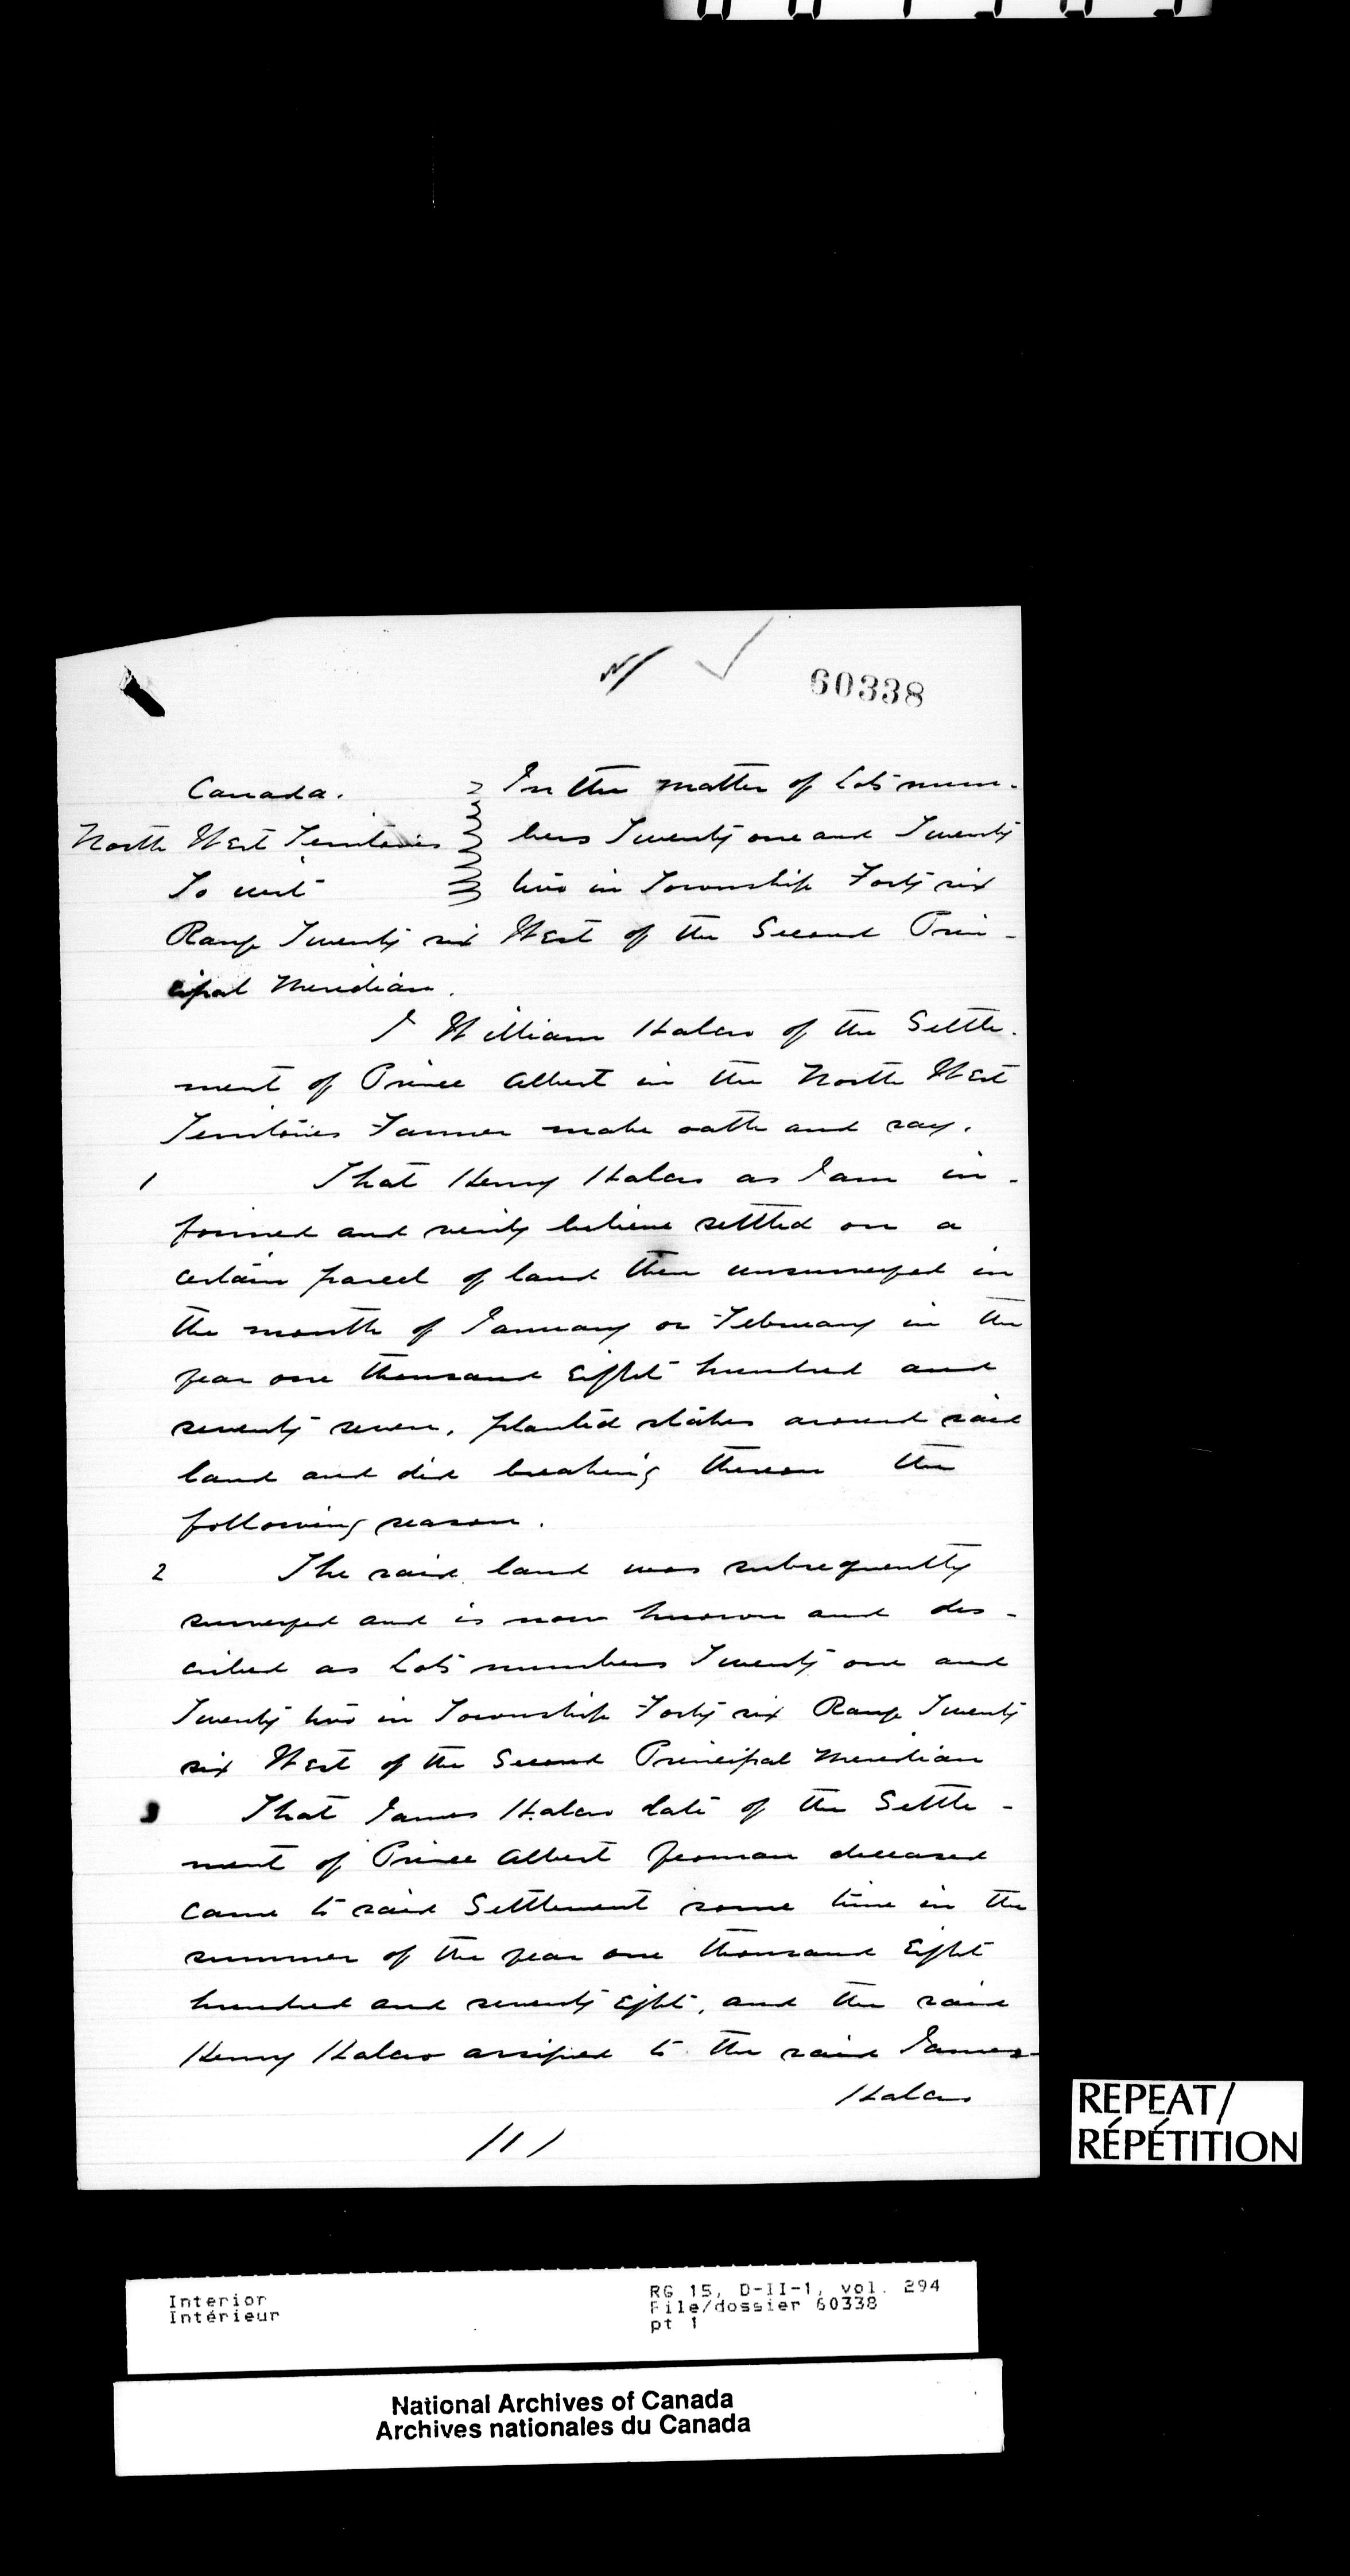 60338
Canada. In the matter of Lots num-
North West Territories bers Twenty one and Twenty
To wit two in Township Forty six
Range Twenty six West of the Second Prin-
cipal Meridian.
I William Halcro of the Settle-
ment of Prince Albert in the North West
Territories Farmer make oath and say.
1 That Henry Halcro as I am in-
formed and verily believe settled on a
certain parcel of land then unsurveyed in
the month of January or February in the
year one thousand Eight hundred and
seventy seven, planted stakes around said
land and did breaking thereon the
following season.
2 The said land was subsequently
surveyed and is now known and des-
cribed as Lots numbers Twenty one and
Twenty two in Township Forty six Range Twenty
six West of the Second Principal Meridian
3 That James Halcro late of the Settle-
ment of Prince Albert Yeoman deceased
came to said Settlement some time in the
summer of the year one thousand Eight
hundred and seventy Eight, and the said
Henry Halcro assigned to the said James
Halcro
/1/
REPEAT/
RÉPÉTITION
Interior
Intérieur
RG 15, D-II-1, vol. 294
File/dossier 60338
pt 1
National Archives of Canada
Archives nationales du Canada